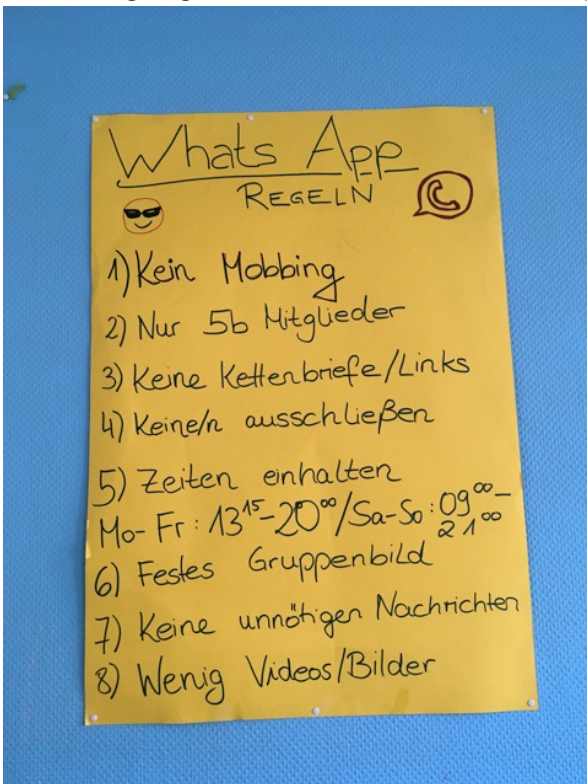 Whats App
REGELN
1) Kein Mobbing
2) Nur 5b Mitglieder
3) Keine Kettenbriefe/Links
4) Keine/n ausschließen
5) Zeiten einhalten
Mo-Fr: 13¹⁵-20⁰⁰/Sa-So: 09⁰⁰-
21⁰⁰
6) Festes Gruppenbild
7) Keine unnötigen Nachrichten
8) Wenig Videos/Bilder